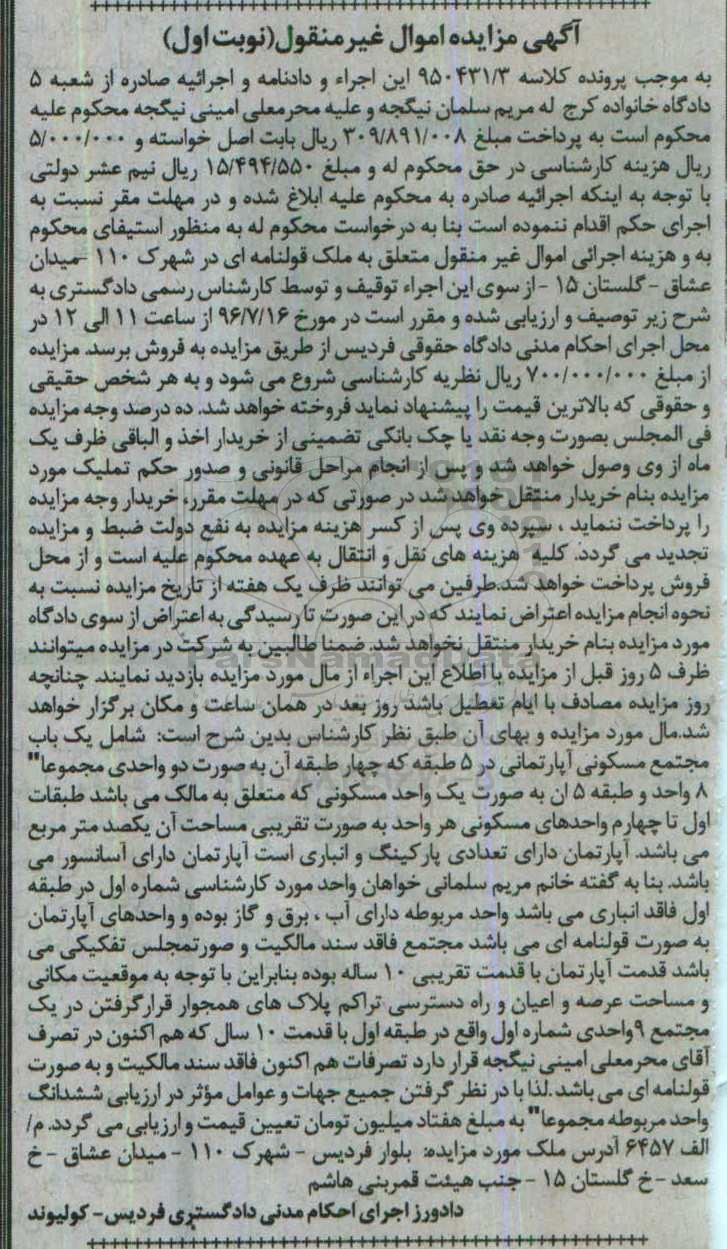 آگهی مزایده اموال غیر منقول(نوبت اول)
به موجب پرونده کلاسه ۹۵۰۴۳۱/۳ این اجراء و دادنامه و اجرائیه صادره از شعبه ۵
دادگاه خانواده کرج له مریم سلمان نیگجه و علیه محرمعلی امینی نیگجه محکوم علیه
محکوم است به پرداخت مبلغ ۳۰۹/۸۹۱/۰۰۸ ریال بابت اصل خواسته و ۵/۰۰۰/۰۰۰
ریال هزینه کارشناسی در حق محکوم له و مبلغ ۱۵/۴۹۴/۵۵۰ ریال نیم عشر دولتی
با توجه به اینکه اجرائیه صادره به محکوم علیه ابلاغ شده و در مهلت مقرر نسبت به
اجرای حکم اقدام ننموده است بنا به درخواست محکوم له به منظور استیفای محکوم
به و هزینه اجرائی اموال غیر منقول متعلق به ملک قولنامه ای در شهرک ۱۱۰ -میدان
عشاق - گلستان ۱۵ - از سوی این اجراء توقیف و توسط کارشناس رسمی دادگستری به
شرح زیر توصیف و ارزیابی شده و مقرر است در مورخ ۹۶/۷/۱۶ از ساعت ۱۱ الی ۱۲ در
محل اجرای احکام مدنی دادگاه حقوقی فردیس از طریق مزایده به فروش برسد. مزایده
از مبلغ ۷۰۰/۰۰۰/۰۰۰ ریال نظریه کارشناسی شروع می شود و به هر شخص حقیقی
و حقوقی که بالاترین قیمت را پیشنهاد نماید فروخته خواهد شد. ده درصد وجه مزایده
فی المجلس بصورت وجه نقد یا چک بانکی تضمینی از خریدار اخذ و الباقی ظرف یک
ماه از وی وصول خواهد شد و پس از انجام مراحل قانونی و صدور حکم تملیک مورد
مزایده بنام خریدار منتقل خواهد شد در صورتی که در مهلت مقرر، خریدار وجه مزایده
را پرداخت ننماید ، سپرده وی پس از کسر هزینه مزایده به نفع دولت ضبط و مزایده
تجدید می گردد. کلیه هزینه های نقل و انتقال به عهده محکوم علیه است و از محل
فروش پرداخت خواهد شد.طرفین می توانند ظرف یک هفته از تاریخ مزایده نسبت به
نحوه انجام مزایده اعتراض نمایند که در این صورت تا رسیدگی به اعتراض از سوی دادگاه
مورد مزایده بنام خریدار منتقل نخواهد شد. ضمنا طالبین به شرکت در مزایده میتوانند
ظرف ۵ روز قبل از مزایده با اطلاع این اجراء از مال مورد مزایده بازدید نمایند. چنانچه
روز مزایده مصادف با ایام تعطیل باشد روز بعد در همان ساعت و مکان برگزار خواهد
شد.مال مورد مزایده و بهای آن طبق نظر کارشناس بدین شرح است: شامل یک باب
مجتمع مسکونی آپارتمانی در ۵ طبقه که چهار طبقه آن به صورت دو واحدی مجموعا"
۸ واحد و طبقه ۵ ان به صورت یک واحد مسکونی که متعلق به مالک می باشد طبقات
اول تا چهارم واحدهای مسکونی هر واحد به صورت تقریبی مساحت آن یکصد متر مربع
می باشد. آپارتمان دارای تعدادی پارکینگ و انباری است آپارتمان دارای آسانسور می
باشد. بنا به گفته خانم مریم سلمانی خواهان واحد مورد کارشناسی شماره اول در طبقه
اول فاقد انباری می باشد واحد مربوطه دارای آب ، برق و گاز بوده و واحدهای آپارتمان
به صورت قولنامه ای می باشد مجتمع فاقد سند مالکیت و صورتمجلس تفکیکی می
باشد قدمت آپارتمان با قدمت تقریبی ۱۰ ساله بوده بنابراین با توجه به موقعیت مکانی
و مساحت عرصه و اعیان و راه دسترسی تراکم پلاک های همجوار قرارگرفتن در یک
مجتمع ۹واحدی شماره اول واقع در طبقه اول با قدمت ۱۰ سال که هم اکنون در تصرف
آقای محرمعلی امینی نیگجه قرار دارد تصرفات هم اکنون فاقد سند مالکیت و به صورت
قولنامه ای می باشد .لذا با در نظر گرفتن جمیع جهات و عوامل مؤثر در ارزیابی ششدانگ
واحد مربوطه مجموعا" به مبلغ هفتاد میلیون تومان تعیین قیمت و ارزیابی می گردد. م/
الف ۶۴۵۷ آدرس ملک مورد مزایده: بلوار فردیس - شهرک ۱۱۰ - میدان عشاق - خ
سعد - خ گلستان ۱۵ - جنب هیئت قمربنی هاشم
دادورز اجرای احکام مدنی دادگستری فردیس- کولیوند
ParsNamadData